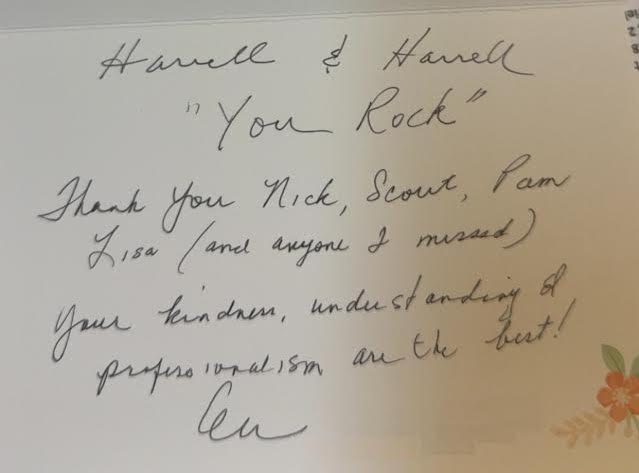 Harrell & Harrell
"You Rock"
Thank You Nick, Scout, Pam
Lisa (and anyone I missed)
Your kindness, understanding &
professionalism are the best!